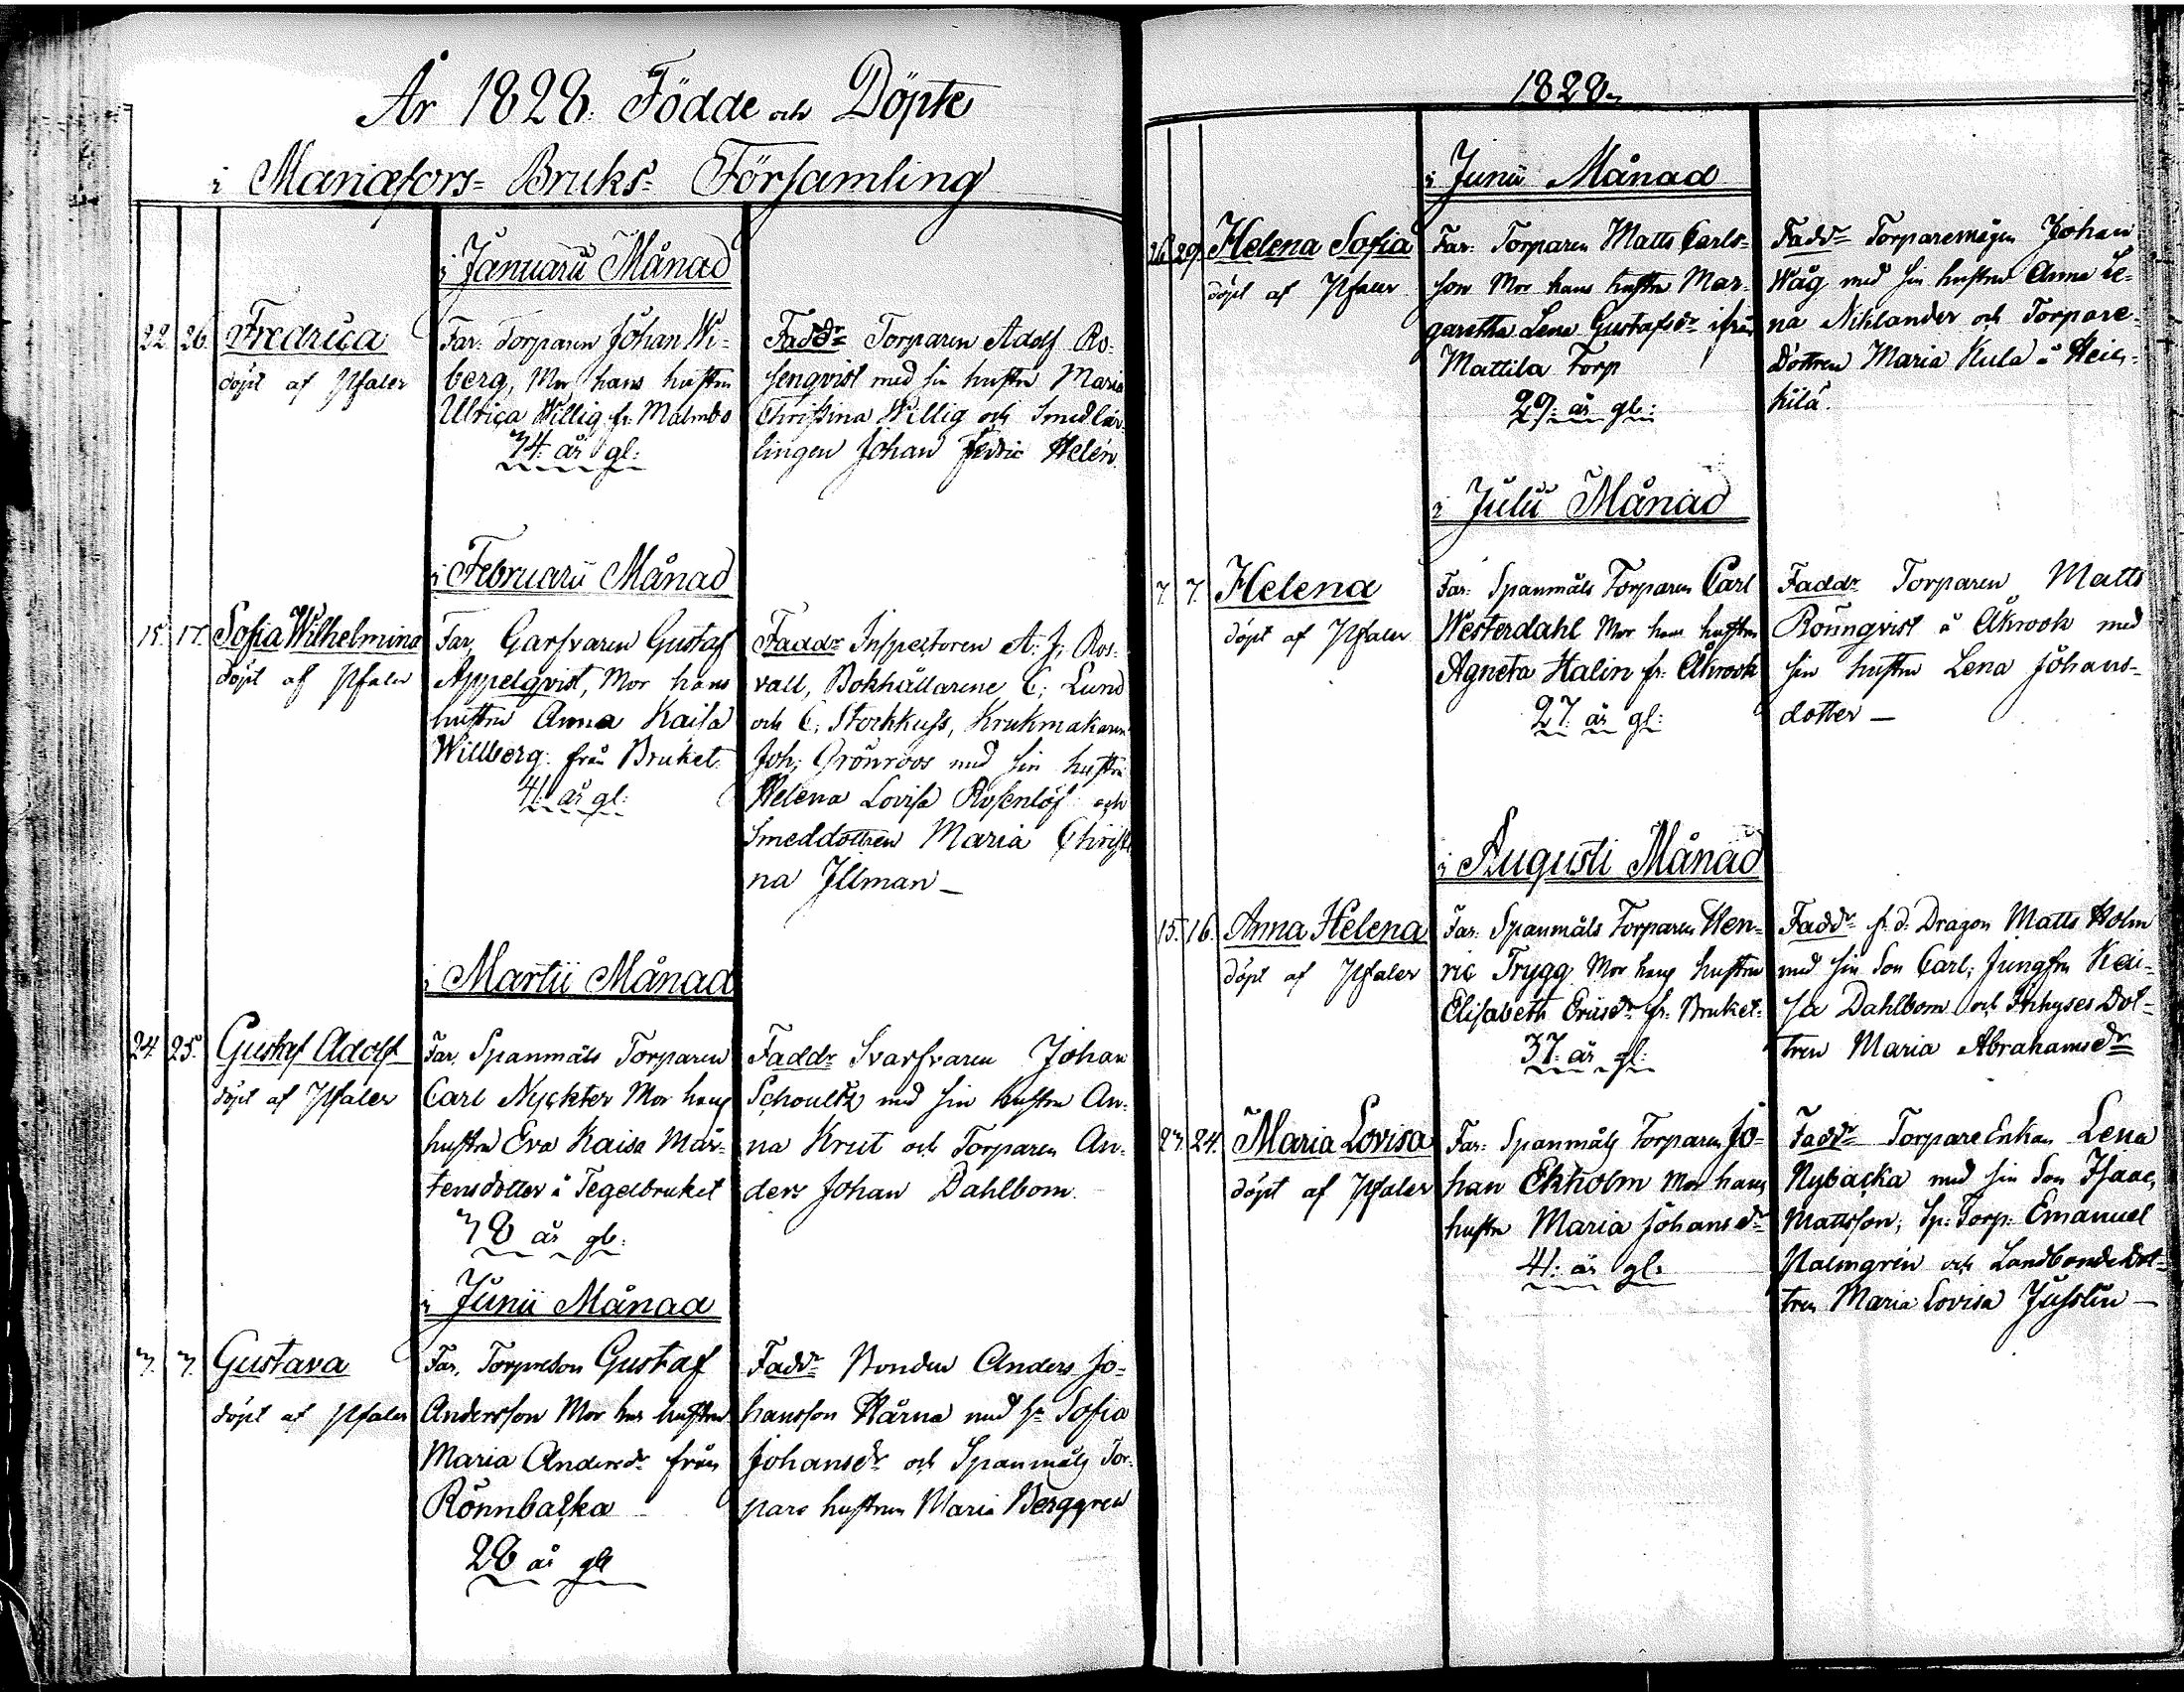 År 1828. Födde och Döpte
i Mariæfors= Bruks= Församling
i Januarii Månad
22. 26. Fredrica
döpt af Pfaler
Far. Torparen Johan Wi-
berg, Mor hans hustru
Ulrica Willig fr. Malmbo
34. år gl:
Faddr Torparen Adolf Ro-
senqvist med sin hustru Maria
Christina Willig och Smedlär-
lingen Johan Fedric Helén
i Februarii Månad
15. 17. Sofia Wilhelmina
döpt af Pfaler
Far, Garfvaren Gustaf
Appelqvist, Mor hans
hustru Anna Kaisa
Willberg. från Bruket.
41. år gl:
Faddr Inspectoren A. J. Ros-
vall, Bokhållarene C. Lund
och C. Stockkuss, Krukmakaren
Joh. Grönroos med sin hustru
Helena Lovisa Rosenlöf och
Smeddottren Maria Christi
na Illman –
i Martii Månad
24. 25. Gustaf Adolf
döpt af Pfaler
Far, Spanmåls Torparen
Carl Nyckter Mor hans
hustru Eva Kaisa Mår-
tensdotter å Tegelbruket
38 år gl:
Faddr Svarfvaren Johan
Schoultz med sin hustru An-
na Krut och Torparen An-
ders Johan Dahlbom.
i Junii Månad
3. 3. Gustava
döpt af Pfaler
Far, Torpareson Gustaf
Andersson Mor hans hustru
Maria Andersdr från
Rönnbacka
28 år gl
Faddr Bonden Anders Jo-
hansson Kärna med hu Sofia
Johansdr och Spanmåls Tor-
pare hustrun Maria Berggren
1828.
i Junii Månad
26. 29. Helena Sofia
döpt af Pfaler
Far. Torparen Matts Carls-
son Mor hans hustru Mar-
garetha Lena Gustafsdr ifrån
Mattila Torp
29. år gl:
Faddr Torparemågen Johan
Wåg med sin hustru Anna Le-
na Niklander och Torpare-
dottren Maria Kula å Hei-
kilä.
i Julii Månad
7. 7. Helena
döpt af Pfaler
Far. Spanmåls Torparen Carl
Westerdahl Mor hans hustru
Agneta Halin fr. Åkrook
27. år gl:
Faddr Torparen Matts
Rönnqvist å Åkrook med
sin hustru Lena Johans-
dotter –
i Augusti Månad
15. 16. Anna Helena
döpt af Pfaler
Far. Spanmåls Torparen Hen-
ric Trygg Mor hans hustru
Elisabeth Ericsdr fr. Bruket.
37. år gl:
Faddr f. d. Dragon Matts Holm
med sin Son Carl, Jungfru Kai-
sa Dahlbom och Inhyses Dot-
tren Maria Abrahamsdr
23. 24. Maria Lovisa
döpt af Pfaler
Far. Spanmåls Torparen Jo-
han Ekholm Mor hans
hustru Maria Johansdr
41. år gl.
Faddr TorpareEnkan Lena
Nybacka med sin Son Isaac
Mattsson, Sp: Torp: Emanuel
Malmgrén och Landbondedot-
tren Maria Lovisa Jusslin –